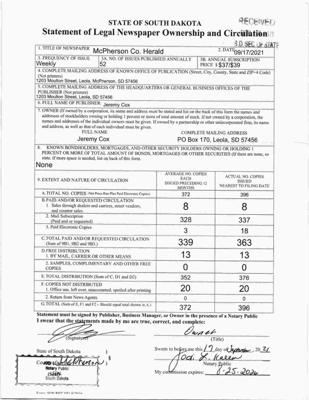 RECEIVED
STATE OF SOUTH DAKOTA
Statement of Legal Newspaper Ownership and Circulation
S.D. SEC. OF STATE
1. TITLE OF NEWSPAPER McPherson Co. Herald 2. DATE 09/17/2021
3. FREQUENCY OF ISSUE Weekly
3A. NO. OF ISSUES PUBLISHED ANNUALLY 52
3B. ANNUAL SUBSCRIPTION PRICE $ $37/$39
4. COMPLETE MAILING ADDRESS OF KNOWN OFFICE OF PUBLICATION (Street, City, County, State and ZIP+4 Code)
(Not printers)
1203 Moulton Street, Leola, McPherson, SD 57456
5. COMPLETE MAILING ADDRESS OF THE HEADQUARTERS OF GENERAL BUSINESS OFFICES OF THE
PUBLISHER (Not printers)
1203 Moulton Street, Leola, SD 57456
6. FULL NAME OF PUBLISHER Jeremy Cox
7. OWNER (If owned by a corporation, its name and address must be stated and list on the back of this form the names and
addresses of stockholders owning or holding 1 percent or more of total amount of stock. If not owned by a corporation, the
names and addresses of the individual owners must be given. If owned by a partnership or other unincorporated firm, its name
and address, as well as that of each individual must be given.
FULL NAME COMPLETE MAILING ADDRESS
Jeremy Cox PO Box 170, Leola, SD 57456
8. KNOWN BONDHOLDERS, MORTGAGES, AND OTHER SECURITY HOLDERS OWNING OR HOLDING 1
PERCENT OR MORE OF TOTAL AMOUNT OF BONDS, MORTGAGES OR OTHER SECURITIES (If there are none, so
state. If more space is needed, list on back of this form.
None
9. EXTENT AND NATURE OF CIRCULATION
AVERAGE NO. COPIES EACH ISSUED PRECEDING 12 MONTHS
ACTUAL NO. COPIES ISSUED NEAREST TO FILING DATE
A. TOTAL NO. COPIES 372 396
B. PAID AND/OR REQUESTED CIRCULATION
1. Sales through dealers and carriers, street vendors,
and counter sales. 8 8
2. Mail Subscription
(Paid and or requested) 328 337
3. Paid Electronic Copies 3 18
C. TOTAL PAID AND/OR REQUESTED CIRCULATION
(Sum of 9B1, 9B2 and 9B3.) 339 363
D. FREE DISTRIBUTION
1. BY MAIL, CARRIER OR OTHER MEANS 13 13
2. SAMPLES, COMPLIMENTARY AND OTHER FREE
COPIES 0 0
E. TOTAL DISTRIBUTION (Sum of C, D1 and D2) 352 376
F. COPIES NOT DISTRIBUTED
1. Office use, left over, unaccounted, spoiled after printing 20 20
2. Return from News Agents 0 0
G. TOTAL (Sum of E, F1 and F2 – Should equal total shown in A.) 372 396
Statement must be signed by Publisher, Business Manager, or Owner in the presence of a Notary Public
I swear that the statements made by me are true, correct, and complete:
Owner
(Title)
State of South Dakota
Sworn to before me this 17 day of September, 20 21
County of McPherson
Notary Public
SEAL
South Dakota
Notary Public
My commission expires: 6-25-2026